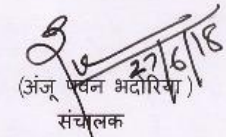 27/6/18
(अंजू पवन भदौरिया)
संचालक